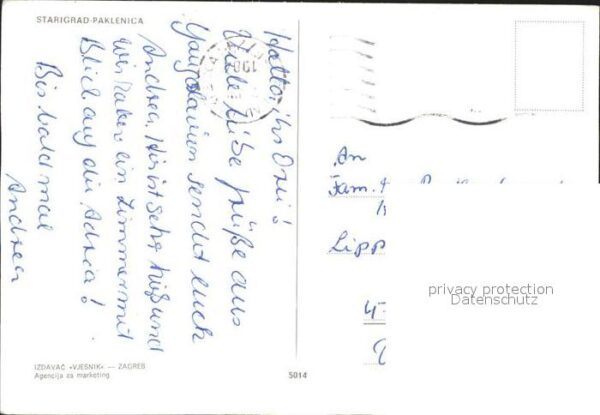 STARIGRAD-PAKLENICA
Hallo, ihr Drei!
Viele liebe Grüße aus
Jugoslawien sendet euch
Andrea. Hier ist sehr heiß und
wir haben ein Zimmer mit
Blick auf die Adria!
Bis bald mal
Andrea
An
Fam.
Lipp
privacy protection
Datenschutz
IZDAVAČ »VJESNIK« — ZAGREB
Agencija za marketing
5014